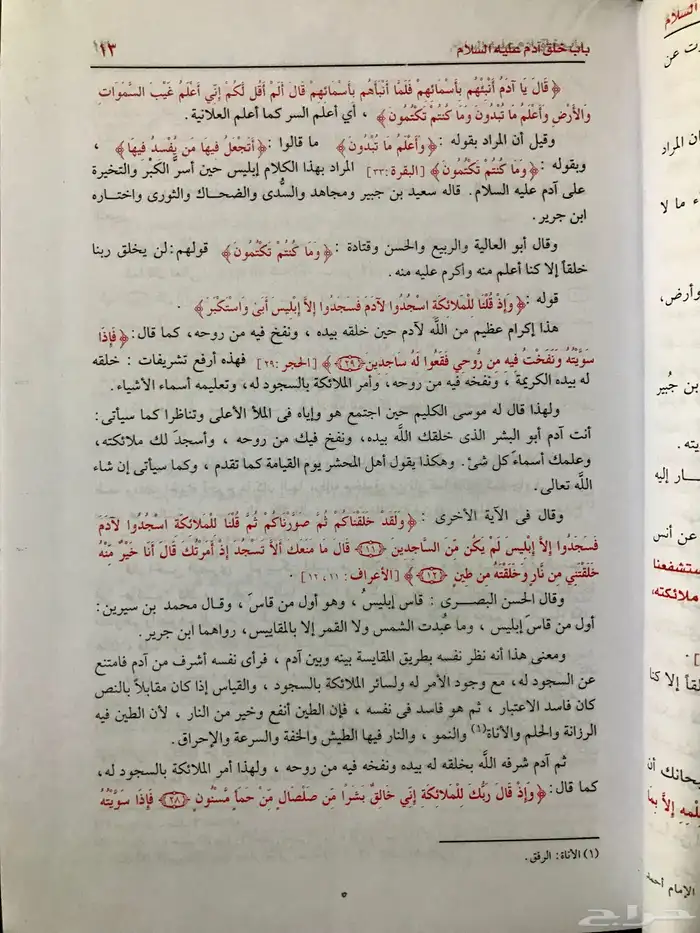 باب خلق آدم عليه السلام
١٣
﴿ قَالَ يَا آدَمُ أَنْبِئْهُم بِأَسْمَائِهِمْ فَلَمَّا أَنْبَأَهُم بِأَسْمَائِهِمْ قَالَ أَلَمْ أَقُل لَّكُمْ إِنِّي أَعْلَمُ غَيْبَ السَّمَوَاتِ
وَالأَرْضِ وَأَعْلَمُ مَا تُبْدُونَ وَمَا كُنتُمْ تَكْتُمُونَ ﴾ ، أي أعلم السر كما أعلم العلانية .
وقيل أن المراد بقوله : ﴿ وَأَعْلَمُ مَا تُبْدُونَ ﴾ ما قالوا : ﴿ أَتَجْعَلُ فِيهَا مَن يُفْسِدُ فِيهَا ﴾ ،
وبقوله : ﴿ وَمَا كُنتُمْ تَكْتُمُونَ ﴾ [البقرة :٣٣] المراد بهذا الكلام إبليس حين أسرَّ الكِبْر والنخيرة
على آدم عليه السلام. قاله سعيد بن جبير ومجاهد والسدى والضحاك والثورى واختاره
ابن جرير.
وقال أبو العالية والربيع والحسن وقتادة : ﴿ وَمَا كُنتُمْ تَكْتُمُونَ ﴾ قولهم: لن يخلق ربنا
خلقاً إلا كنا أعلم منه وأكرم عليه منه .
قوله : ﴿ وَإِذْ قُلْنَا لِلْمَلائِكَةِ اسْجُدُوا لآدَمَ فَسَجَدُوا إِلاَّ إِبْلِيسَ أَبَىٰ وَاسْتَكْبَرَ ﴾ .
هذا إكرام عظيم من اللَّه لآدم حين خلقه بيده ، ونفخ فيه من روحه، كما قال : ﴿ فَإِذَا
سَوَّيْتُهُ وَنَفَخْتُ فِيهِ مِن رُّوحِي فَقَعُوا لَهُ سَاجِدِينَ ﴿٢٩﴾ ﴾ [الحجر :٢٩] فهذه أرفع تشريفات : خلقه
له بيده الكريمة ، ونفخه فيه من روحه، وأمر الملائكة بالسجود له، وتعليمه أسماء الأشياء .
ولهذا قال له موسى الكليم حين اجتمع هو وإياه فى الملأ الأعلى وتناظرا كما سيأتى:
أنت آدم أبو البشر الذى خلقك اللَّه بيده، ونفخ فيك من روحه ، وأسجدَ لك ملائكته،
وعلمك أسماءَ كل شئ. وهكذا يقول أهل المحشر يوم القيامة كما تقدم ، وكما سيأتى إن شاء
اللَّه تعالى .
وقال فى الآية الأخرى : ﴿ وَلَقَدْ خَلَقْنَاكُمْ ثُمَّ صَوَّرْنَاكُمْ ثُمَّ قُلْنَا لِلْمَلائِكَةِ اسْجُدُوا لآدَمَ
فَسَجَدُوا إِلاَّ إِبْلِيسَ لَمْ يَكُن مِّنَ السَّاجِدِينَ ﴿١١﴾ قَالَ مَا مَنَعَكَ أَلاَّ تَسْجُدَ إِذْ أَمَرْتُكَ قَالَ أَنَا خَيْرٌ مِّنْهُ
خَلَقْتَنِي مِن نَّارٍ وَخَلَقْتَهُ مِن طِينٍ ﴿١٢﴾ ﴾ [الأعراف : ١١ ، ١٢] .
وقال الحسن البصرى : قاس إبليسُ ، وهو أول من قاسَ . وقال محمد بن سيرين:
أول من قاسَ إبليس ، وما عُبدت الشمس ولا القمر إلا بالمقاييس. رواهما ابن جرير.
ومعنى هذا أنه نظر نفسه بطريق المقايسة بينه وبين آدم ، فرأى نفسه أشرف من آدم فامتنع
عن السجود له، مع وجود الأمر له ولسائر الملائكة بالسجود ، والقياس إذا كان مقابلاً بالنص
كان فاسد الاعتبار ، ثم هو فاسد فى نفسه ، فإن الطين أنفع وخير من النار ، لأن الطين فيه
الرزانة والحلم والأناة(١) والنمو ، والنار فيها الطيش والخفة والسرعة والإحراق.
ثم آدم شرفه اللَّه بخلقه له بيده ونفخه فيه من روحه ، ولهذا أمر الملائكة بالسجود له،
كما قال : ﴿ وَإِذْ قَالَ رَبُّكَ لِلْمَلائِكَةِ إِنِّي خَالِقٌ بَشَرًا مِّن صَلْصَالٍ مِّنْ حَمَإٍ مَّسْنُونٍ ﴿٢٨﴾ فَإِذَا سَوَّيْتُهُ
(١) الأناة: الرفق .
السلام
ت عن
ن المراد
ء ما لا
وأرض،
بن جُبير
يته .
ـار إليه
عن أنس
ستشفعنا
ملائكته،
قاً إلا كنا
ـحانك أن
الإمام أحمد
حراج